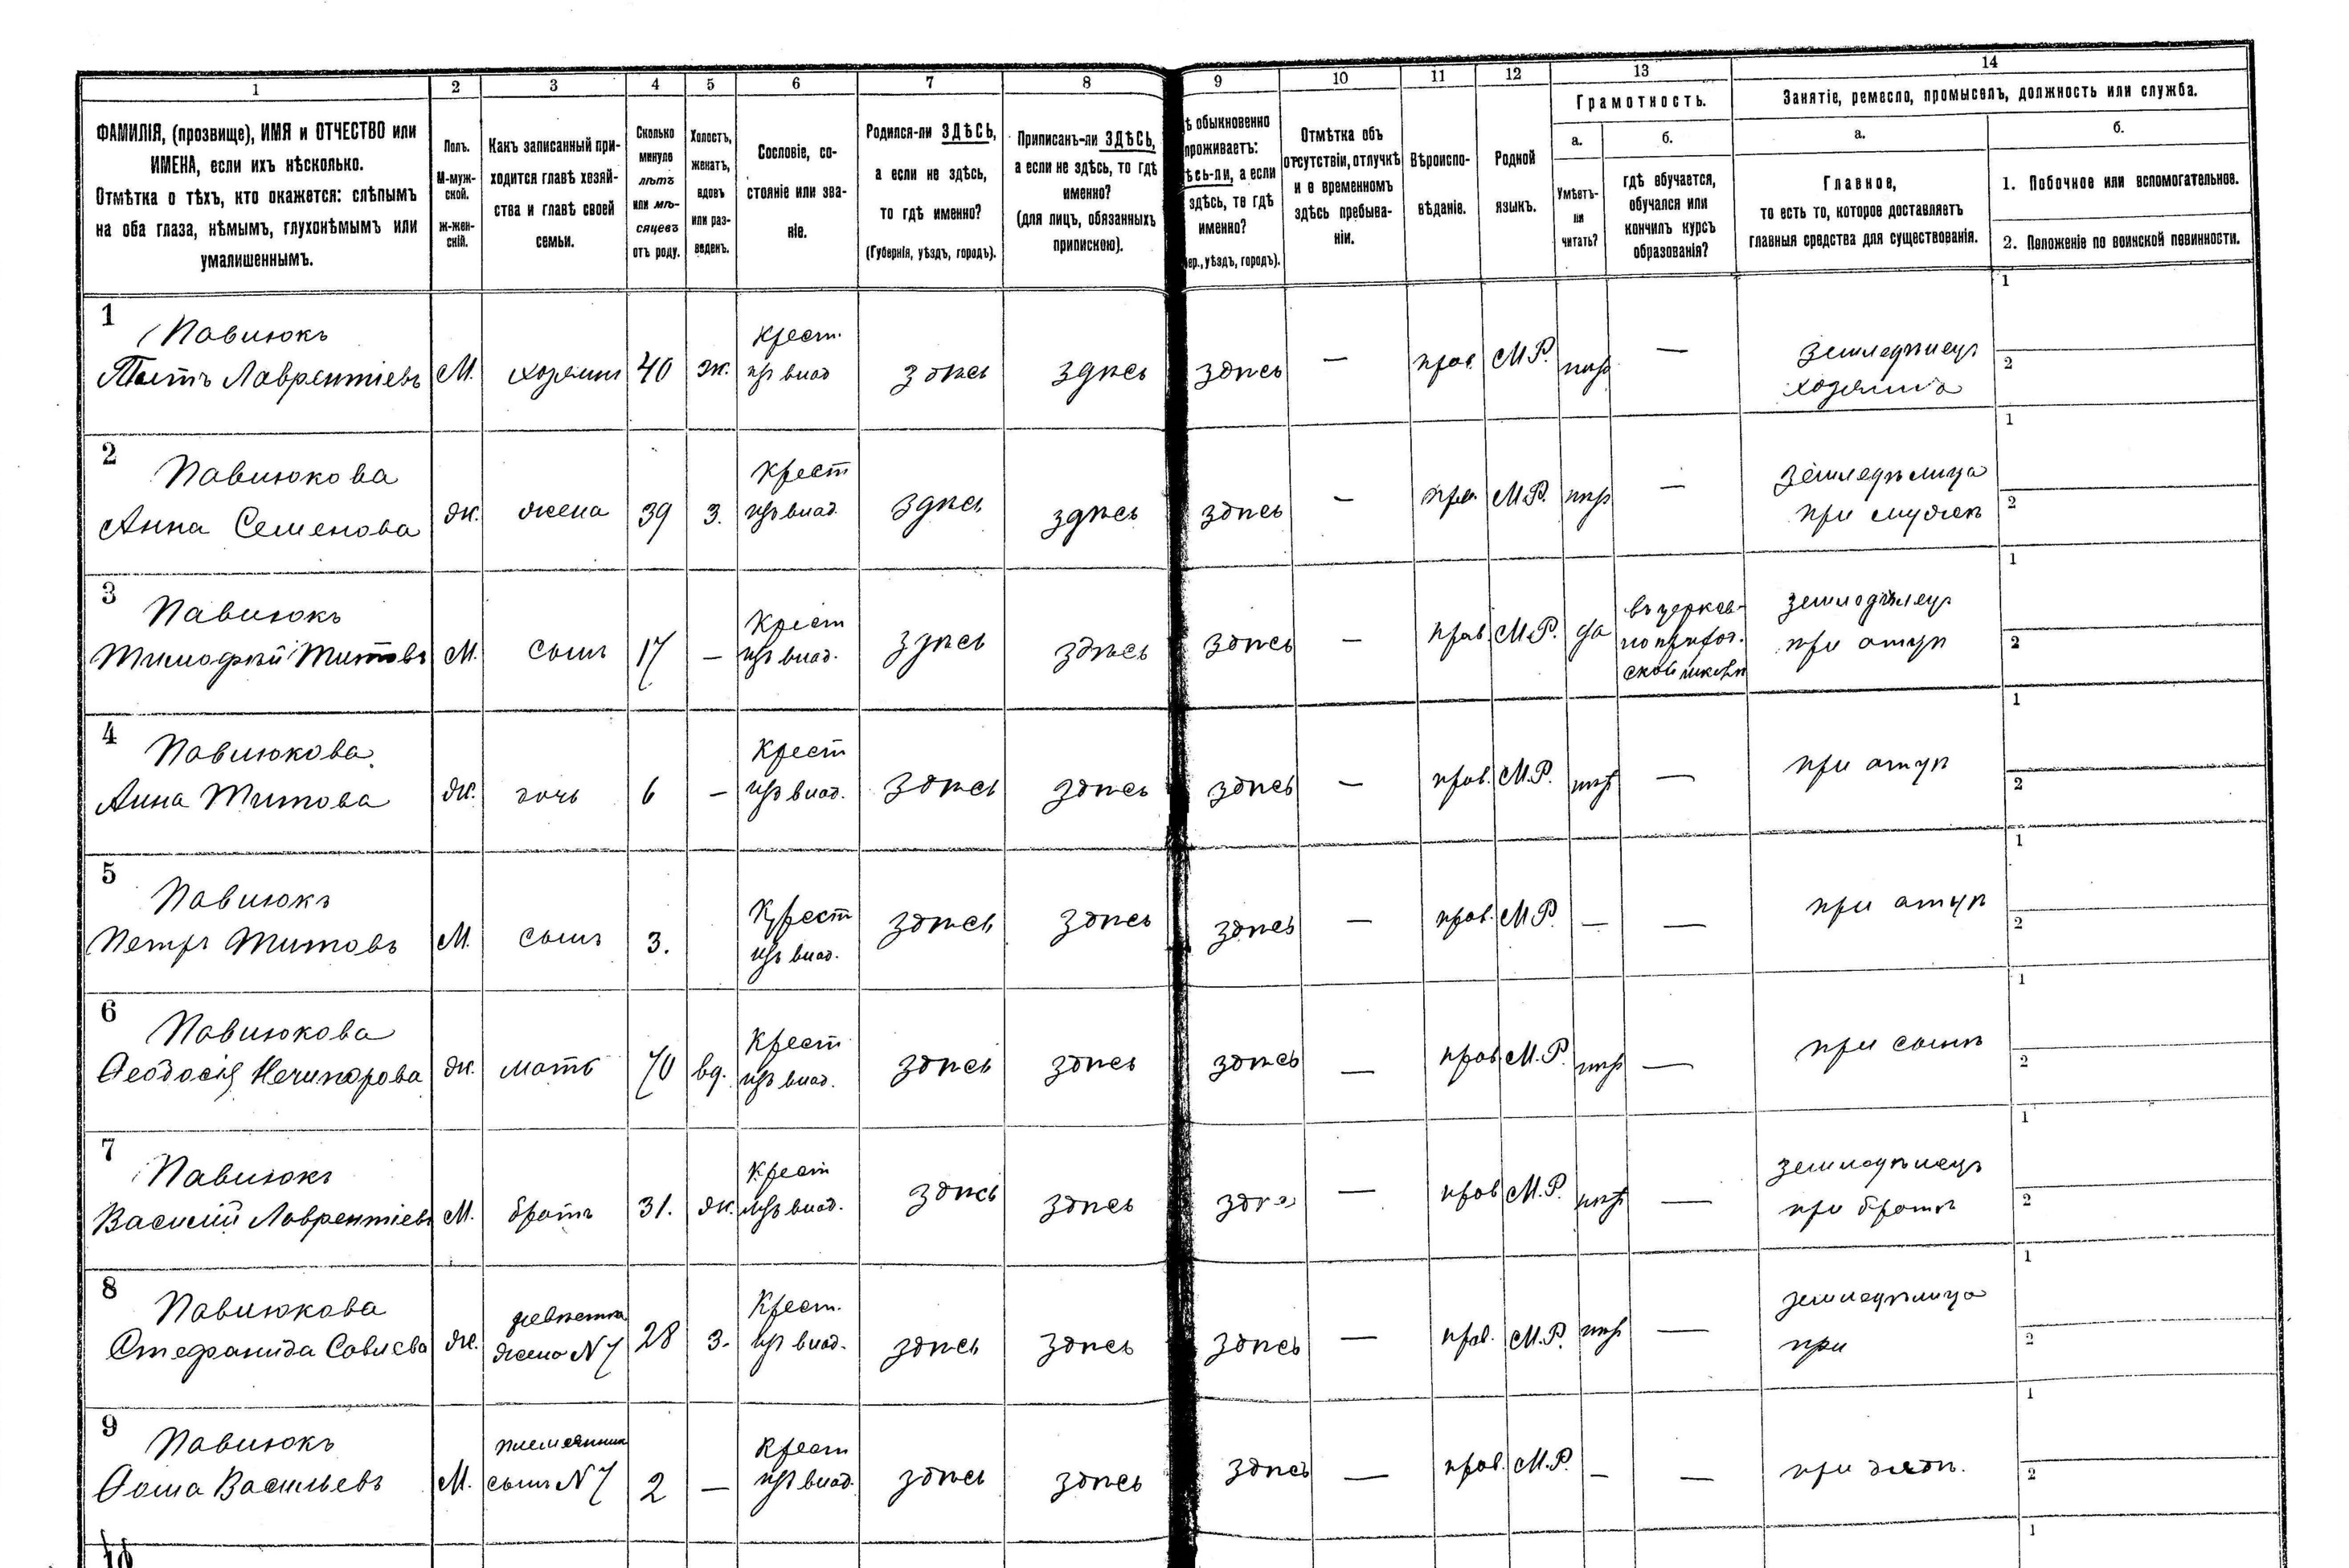 1 2 3 4 5 6 7 8 9 10 11 12 13 14
ФАМИЛІЯ, (прозвище), ИМЯ и ОТЧЕСТВО или
ИМЕНА, если ихъ нѣсколько.
Отмѣтка о тѣхъ, кто окажется: слѣпымъ
на оба глаза, нѣмымъ, глухонѣмымъ или
умалишеннымъ.
Полъ.
М-муж-
ской.
ж-жен-
скій.
Какъ записанный при-
ходится главѣ хозяй-
ства и главѣ своей
семьи.
Сколько
минуло
лѣтъ
или мѣ-
сяцевъ
отъ роду.
Холостъ,
женатъ,
вдовъ
или раз-
веденъ.
Сословіе, со-
стояніе или зва-
ніе.
Родился-ли ЗДѢСЬ,
а если не здѣсь,
то гдѣ именно?
(Губернія, уѣздъ, городъ).
Приписанъ-ли ЗДѢСЬ,
а если не здѣсь, то гдѣ
именно?
(для лицъ, обязанныхъ
припискою).
ѣ обыкновенно
проживаетъ:
ѣсь-ли, а если
здѣсь, то гдѣ
именно?
ер., уѣздъ, городъ).
Отмѣтка объ
отсутствіи, отлучкѣ
и о временномъ
здѣсь пребыва-
ніи.
Вѣроиспо-
вѣданіе.
Родной
языкъ.
Грамотность.
а.
Умѣетъ-
ли
читать?
б.
гдѣ обучается,
обучался или
кончилъ курсъ
образованія?
Занятіе, ремесло, промыселъ, должность или служба.
а.
Главное,
то есть то, которое доставляетъ
главныя средства для существованія.
б.
1. Побочное или вспомогательное.
2. Положеніе по воинской повинности.
1
Павлюкъ
Титъ Лаврентіевъ М. хозяинъ 40 ж.
Крест.
изъ влад здѣсь здѣсь здѣсь — прав. М.Р. нѣтъ —
земледѣлецъ
хозяинъ
1
2
2
Павлюкова
Анна Семенова ж. жена 39 з.
Крест
изъ влад. здѣсь здѣсь здѣсь — прав. М.Р. нѣтъ —
земледѣлица
при мужѣ
1
2
3
Павлюкъ
Тимофѣй Титовъ М. сынъ 17 —
Крест
изъ влад. здѣсь здѣсь здѣсь — прав. М.Р. да
въ церков-
но приход.
ской школѣ
земледѣлецъ
при отцѣ
1
2
4
Павлюкова
Анна Титова ж. дочь 6 —
Крест
изъ влад. здѣсь здѣсь здѣсь — прав. М.Р. нѣтъ —
при отцѣ
1
2
5
Павлюкъ
Петръ Титовъ М. сынъ 3.
Крест
изъ влад. здѣсь здѣсь здѣсь — прав. М.Р. — —
при отцѣ
1
2
6
Павлюкова
Ѳеодосія Нечипорова ж. мать 70 вд.
Крест
изъ влад. здѣсь здѣсь здѣсь — прав М.Р. нѣтъ —
при сынѣ
1
2
7
Павлюкъ
Василій Лаврентіевъ М. братъ 31. ж.
Крест
изъ влад. здѣсь здѣсь — прав М.Р. нѣтъ —
земледѣлецъ
при братѣ
1
2
8
Павлюкова
Стефанида Савлева ж.
невѣстка
жена N 7 28 з.
Крест.
изъ влад. здѣсь здѣсь здѣсь — прав. М.Р. нѣтъ —
земледѣлица
при
1
2
9
Павлюкъ
Ѳома Васильевъ М.
племянникъ
сынъ N 7 2 —
Крест
изъ влад. здѣсь здѣсь здѣсь — прав. М.Р. — —
при дядѣ.
1
2
10
1